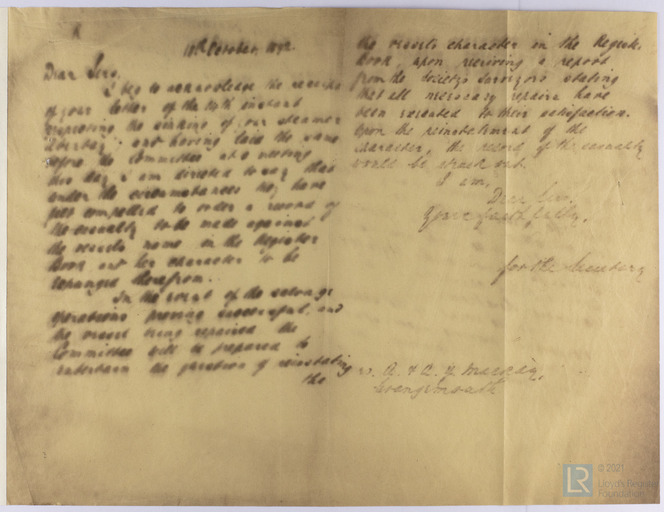 October, 1892.
Dear Sirs,
I beg to acknowledge the receipt
of your letter of the 14th instant
respecting the sinking of your steamer
and having laid the same
before the Committee at a meeting
this day I am directed to say that
under the circumstances they have
felt compelled to order a record of
the casualty to be made against
the vessel's name in the Register
Book and her character to be
expunged therefrom.
In the event of the salvage
operations proving successful, and
the vessel being repaired the
Committee will be prepared to
entertain the question of reinstating
the
the vessel's character in the Register
Book, upon receiving a report
from the Society's Surveyors stating
that all necessary repairs have
been executed to their satisfaction.
Upon the reinstatement of the
character, the record of the casualty
would be struck out.
I am,
Dear Sirs,
Yours faithfully,
for the Secretary
A. & A. Y. Mackay,
Grangemouth
LR
© 2021
Lloyd's Register
Foundation